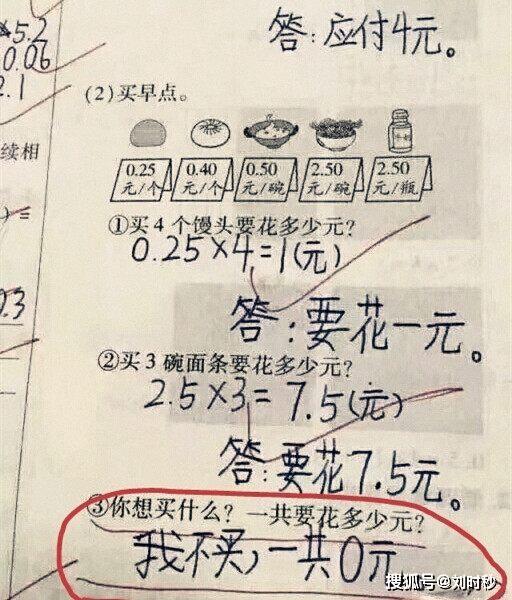 ×5.2
0.06
2.1
答:应付4元。
(2)买早点。
续相
0.25 元/个
0.40 元/个
0.50 元/碗
2.50 元/碗
2.50 元/瓶
)=
①买 4 个馒头要花多少元?
0.25×4=1(元)
0.3
答:要花一元。
②买 3 碗面条要花多少元?
2.5×3=7.5(元)
答:要花7.5元。
③你想买什么? 一共要花多少元?
我不买,一共0元
搜狐号@刘时秒